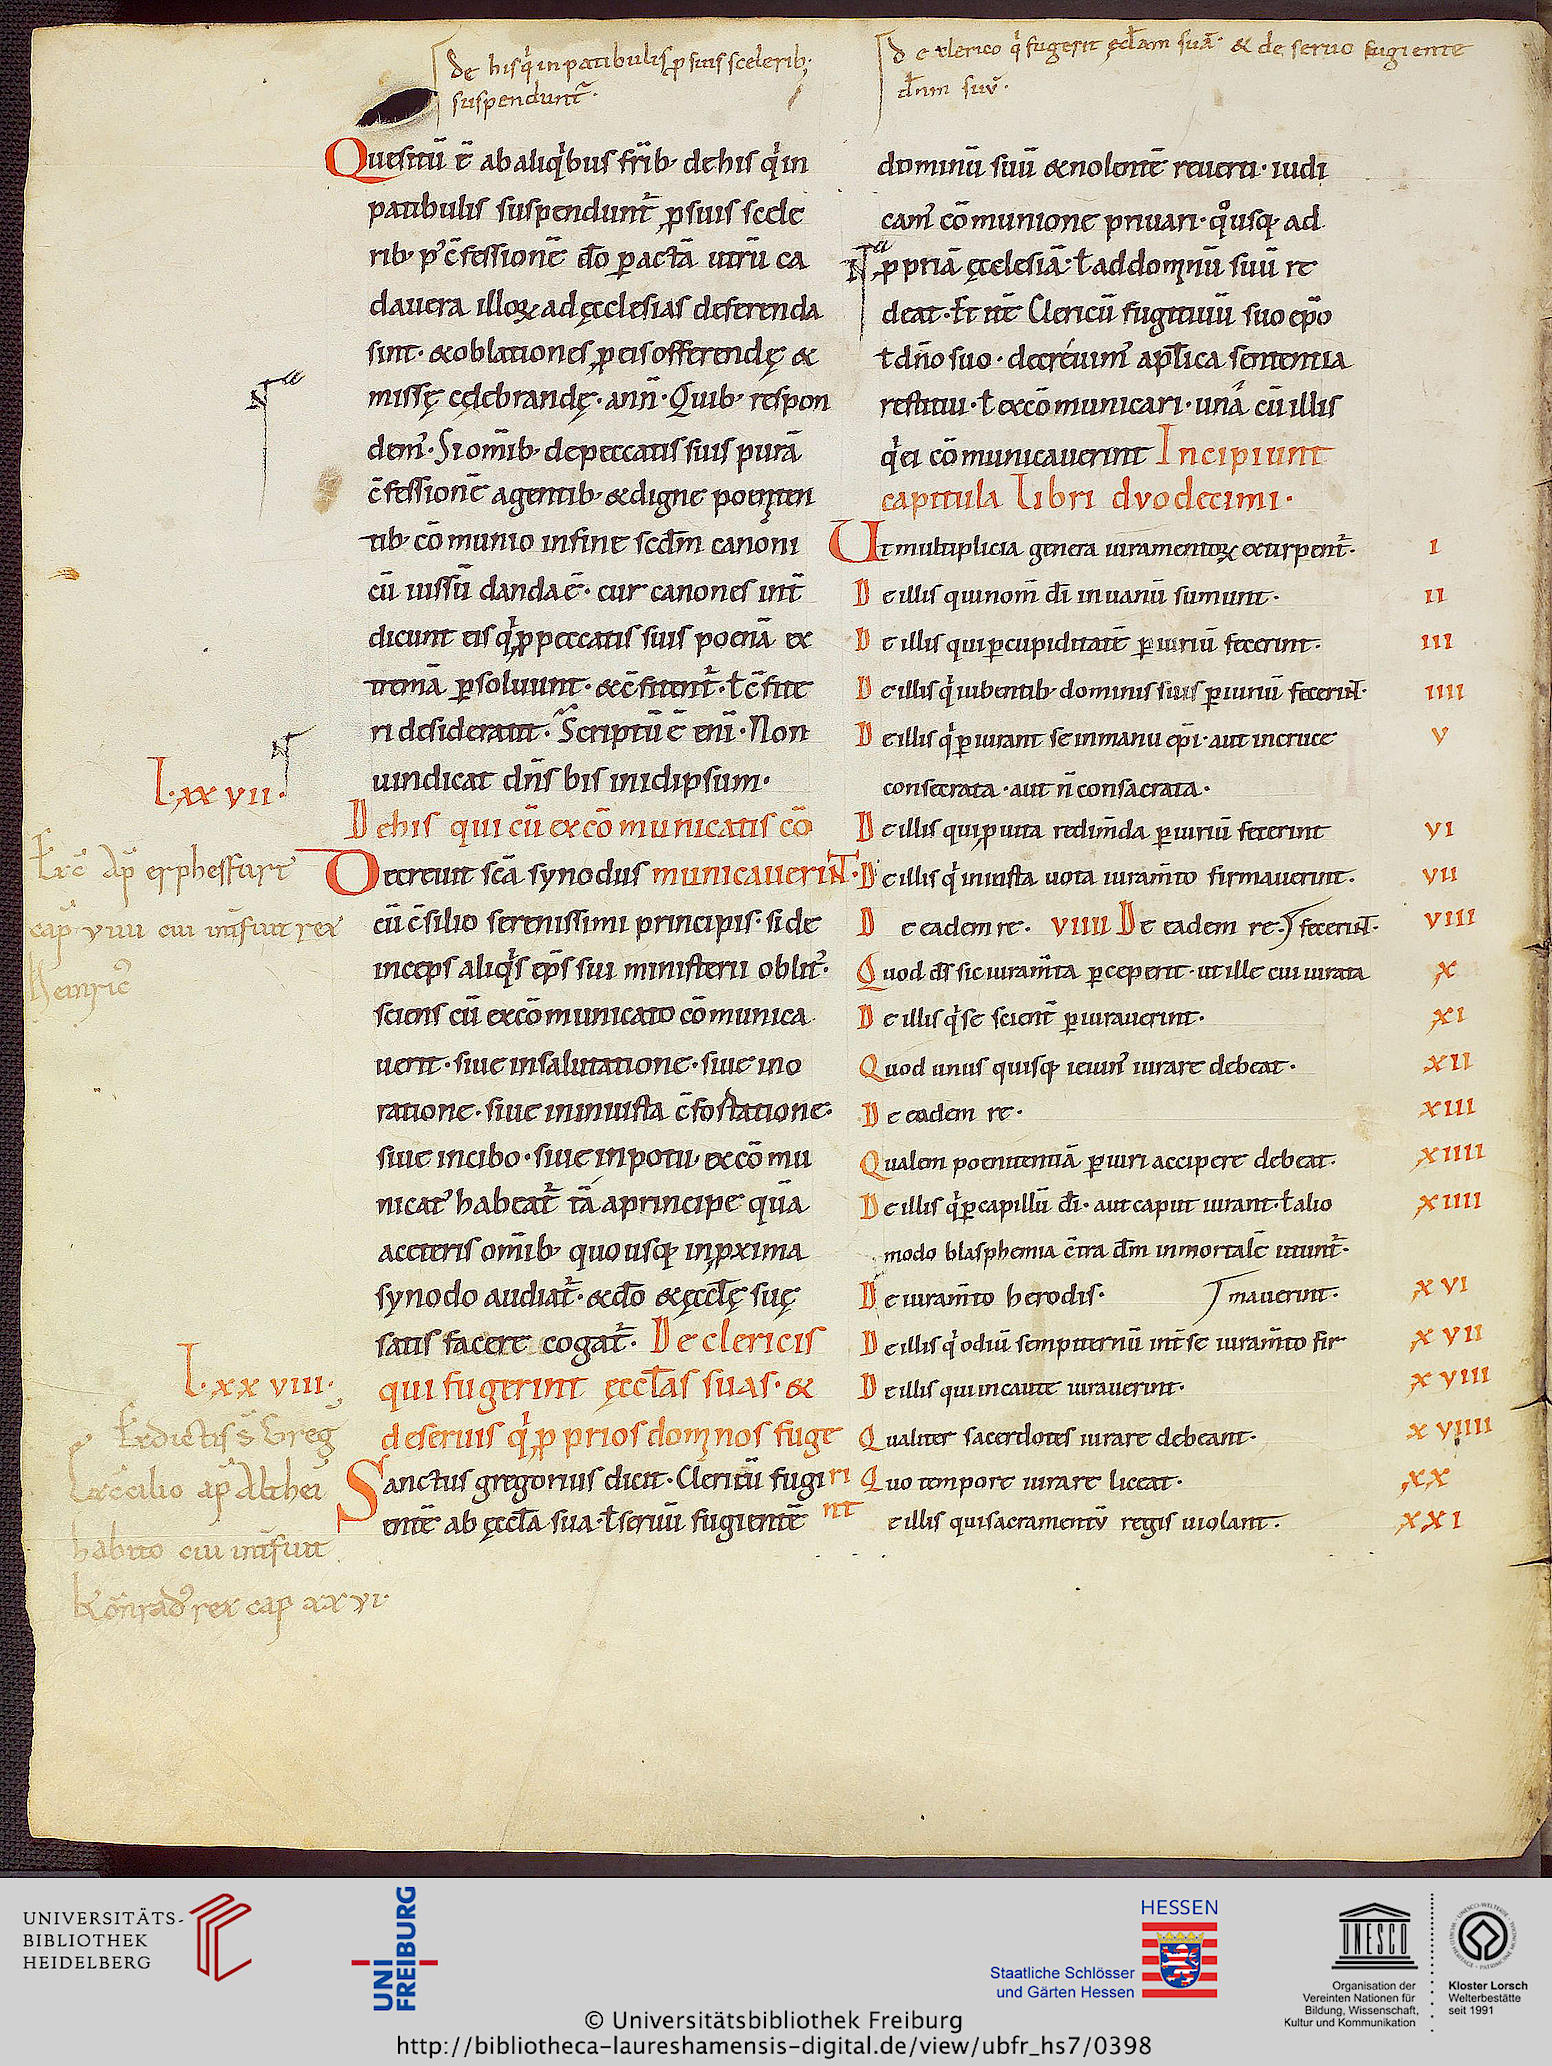 de his q̍ in patibulis ꝓ suis sceleribꝫ
suspendunt᷑.
Quesitū ē ab aliq̍bus fr̄ib· de his q̍ in
patibulis suspendunt᷑ ꝓ suis scele
rib· p᷒ c̄fessionē d̄o ꝑactā utrū ca
dauera illoꝝ ad ęcclesias deferenda
sint· & oblationes ꝓ eis offerendę &
missę celebrandę· ann̄· Quib· respon
dem᷒· Si om̄ib· de peccatis suis purā
c̄fessionē agentib· & digne poeniten
tib· cōmunio in fine scd̄m canoni
cū iussū danda ē· cur canones int̄
dicunt eis q̍ ꝓ peccatis suis poenā ex
tremā ꝑsoluunt· & c̄fitent᷑· ł c̄fite
ri desiderant· Scriptū ē eni̅· Non
uindicat dn̄s bis in idipsum·
L·xxvii·
De his qui cū excōmunicatis cō
municauerint·
Decreuit sc̄a synodus
cū c̄silio serenissimi principis· si de
inceps aliq̍s ep̄s sui ministerii oblit᷒·
sciens cū excōmunicato cōmunica
uerit· siue in salutatione· siue in o
ratione· siue in iniusta c̄fostatione·
siue in cibo· siue in potu· excōmu
nicat᷒ habeat᷑ tā a principe quā
a ceteris om̄ib· quousqꝫ in ꝓxima
synodo audiat᷑· & d̄o & ęccl̄ę suę
satis facere cogat᷑· De clericis
qui fugerint ęccl̄as suas· &
de seruis q̍ ꝓprios domnos fuge
rint
L·xxviii·
Sanctus gregorius dicit· Clericū fugi
entē ab ęccl̄a sua· ł seruū fugientē
Ex c̄ ap̄ erphesfurt
cap̄ viiii cui int̄fuit rex
Heinric᷒
Ex dictis s̄ Greg̅
Ex c̄cilio ap̄ Althei
habito cui int̄fuit
Kōnrad᷒ rex cap xxvi·
de clerico q̍ fugerit ęccl̄am suā· & de seruo fugiente
dn̄m suū·
dominū suū & nolentē reuerti· iudi
cam᷒ cōmunione priuari· q̊usqꝫ ad
ꝓpriā ęcclesiā· ł ad domnū suū re
deat· Et itē Clericū fugitiuū suo ep̄o
ł dn̄o suo· decreuim᷒ apl̄ica sententia
restitui· ł excōmunicari· unā cū illis
q̍ ei cōmunicauerint Incipiunt
capitula Libri duodecimi·
Ut multiplicia genera iuramentoꝝ extirpent᷑· I
De illis qui nom̄ d̄i in uanū sumunt· II
De illis qui ꝑ cupiditatē ꝑiuriū fecerint· III
De illis q̍ iubentib· dominis suis ꝑiuriū fecerint· IIII
De illis q̍ ꝑiurant se in manu ep̄i· aut in cruce V
consecrata· aut n̄ consacrata·
De illis qui ꝓ uita redim̄da ꝑiuriū fecerint VI
De illis q̍ iniusta uota iuram̄to firmauerint· VII
De eadem re· VIIII De eadem re· fecerint· VIII
Quod d̄s sic iuram̄ta ꝑceperit· ut ille cui iurata X
De illis q̍ se scient̄ ꝑiurauerint· XI
Quod unus quisqꝫ ieiun᷒ iurare debeat· XII
De eadem re· XIII
Qualem poenitentiā ꝑiuri accipere debeat· XIIII
De illis q̍ ꝑ capillū d̄i· aut caput iurant· ł alio XIIII
modo blasphemia c̄tra d̄m inmortalē utunt᷑·
De iuram̄to herodis· mauerint· XVI
De illis q̍ odiū sempiternū int̄ se iuram̄to fir XVII
De illis qui incaute iurauerint· XVIII
Qualiter sacerdotes iurare debeant· XVIIII
Quo tempore iurare liceat· XX
e illis qui sacramentū regis uiolant· XXI
UNIVERSITÄTS-
BIBLIOTHEK
HEIDELBERG
UNI
FREIBURG
HESSEN
Staatliche Schlösser
und Gärten Hessen
UNESCO
Organisation der
Vereinten Nationen für
Bildung, Wissenschaft,
Kultur und Kommunikation
Kloster Lorsch
Welterbestätte
seit 1991
© Universitätsbibliothek Freiburg
http://bibliotheca-laureshamensis-digital.de/view/ubfr_hs7/0398